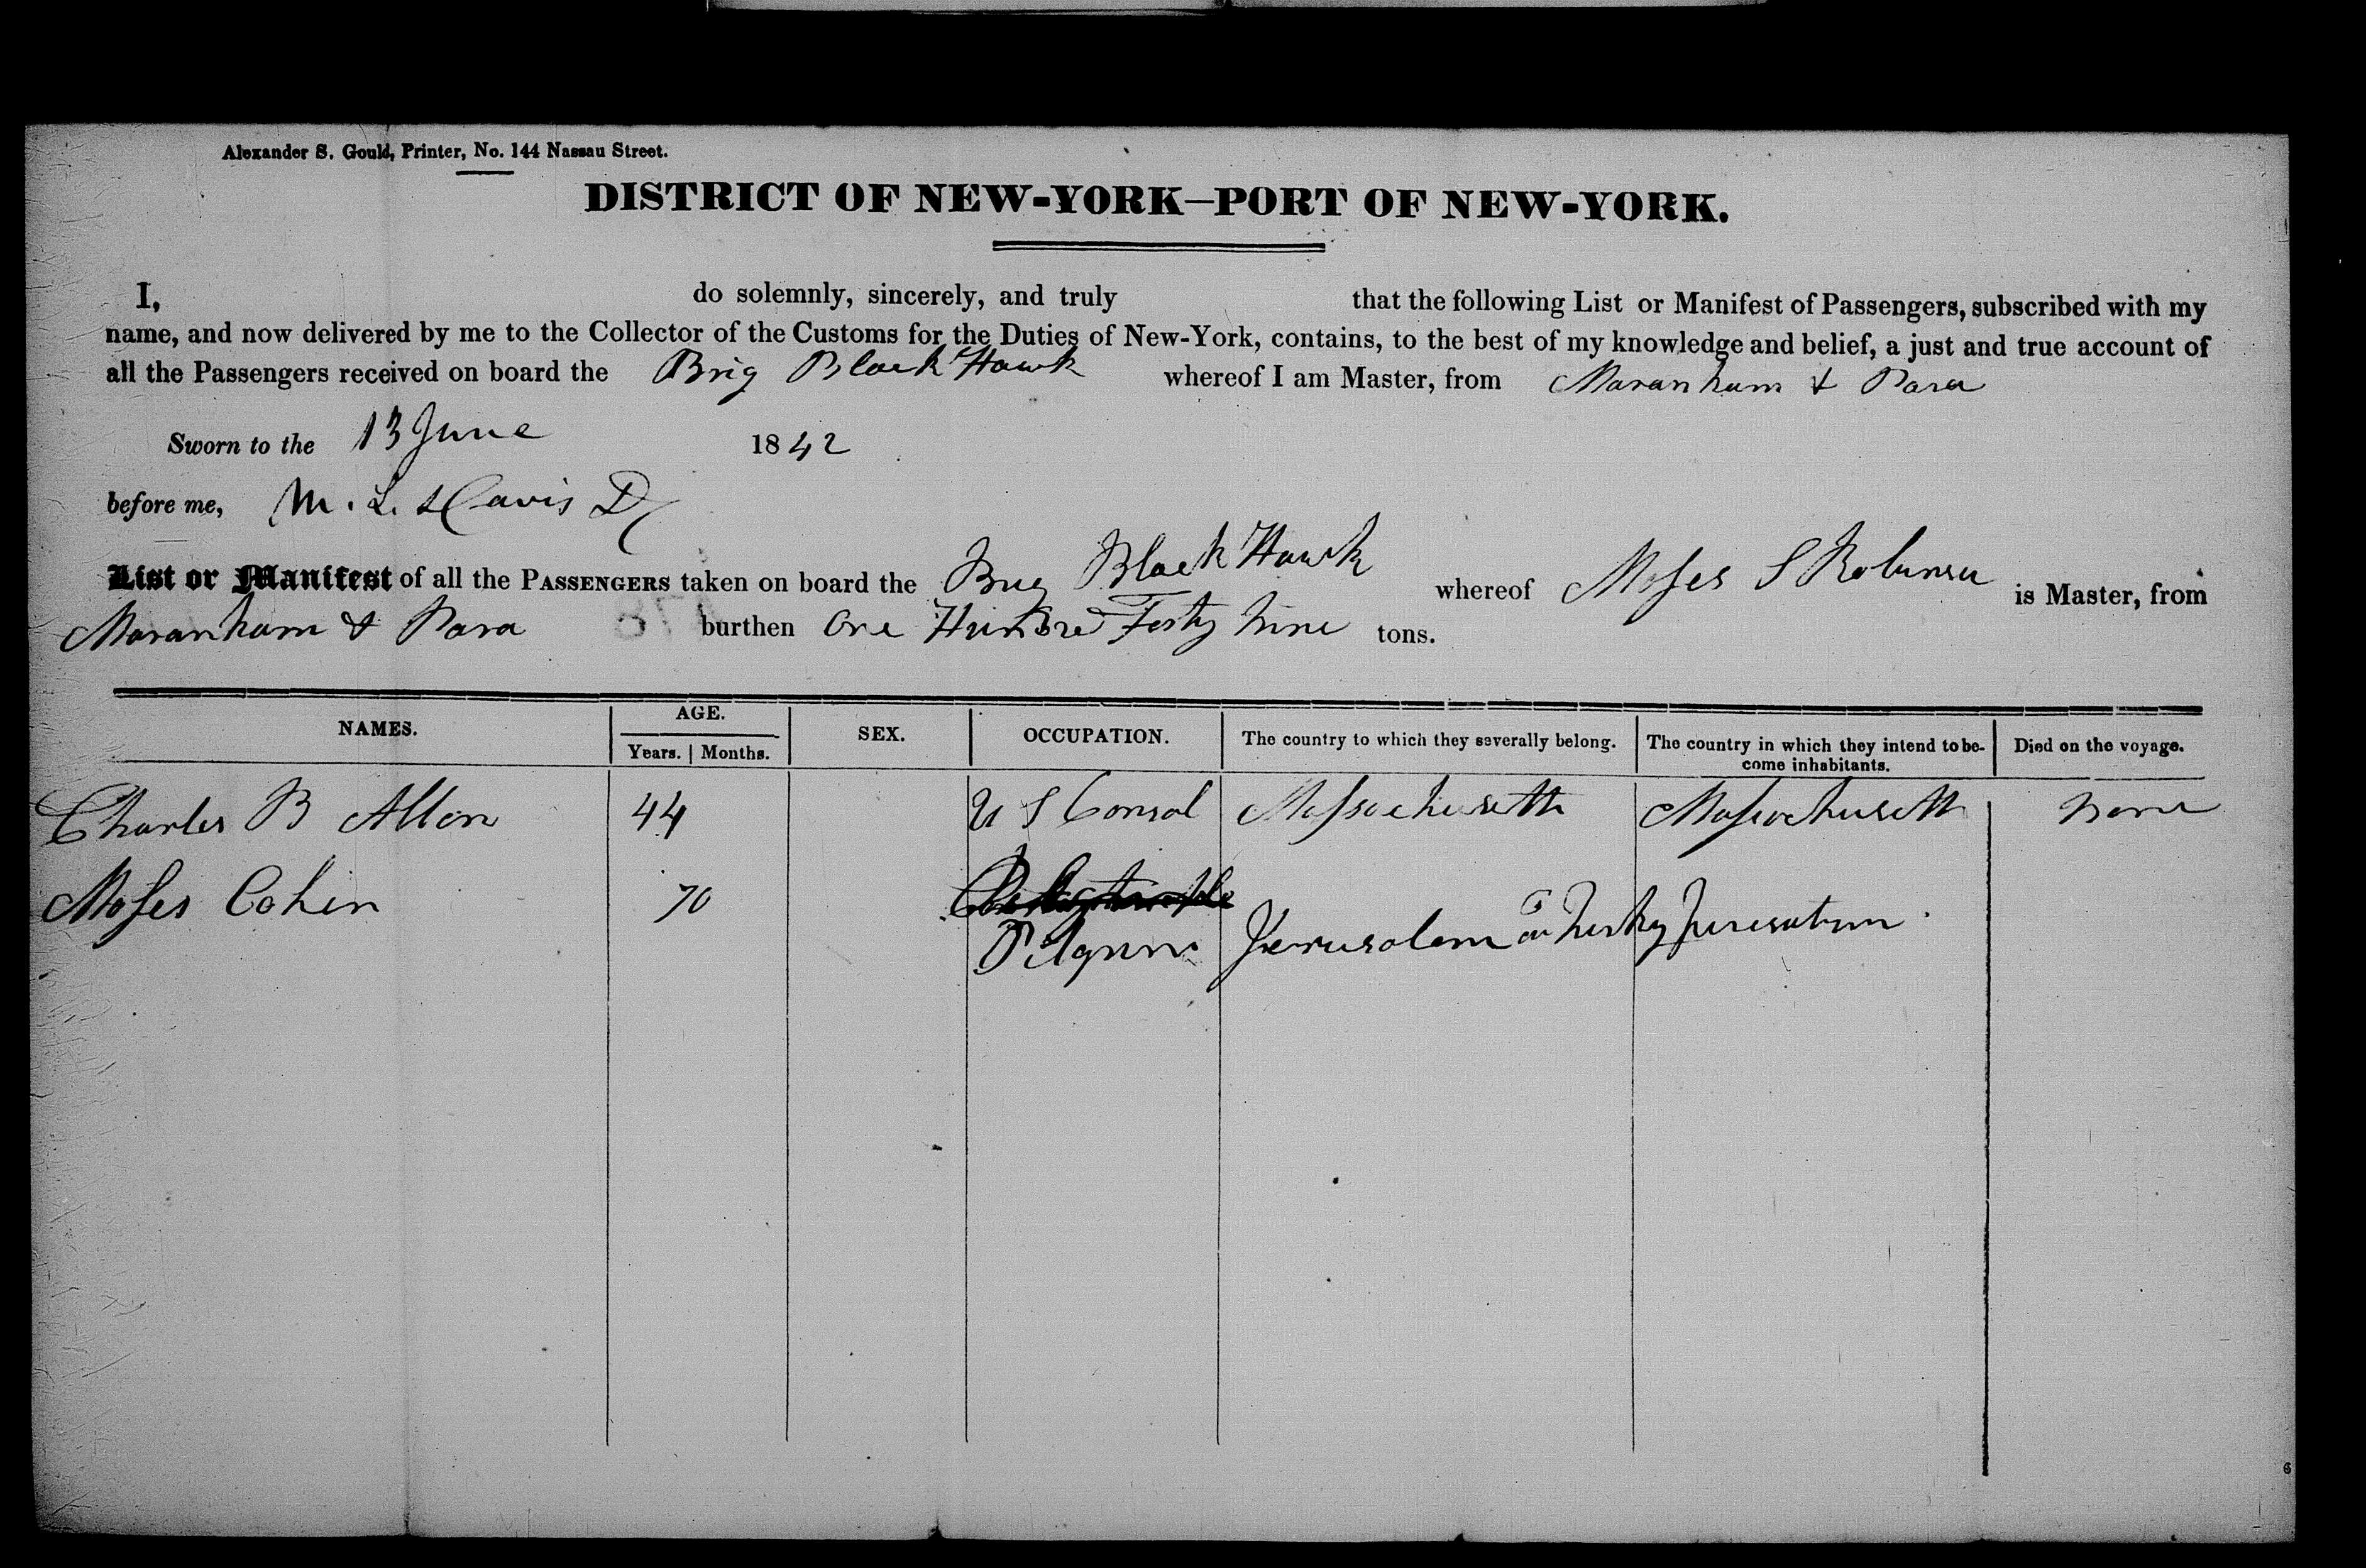 Alexander S. Gould, Printer, No. 144 Nassau Street.
DISTRICT OF NEW-YORK—PORT OF NEW-YORK.
I, do solemnly, sincerely, and truly that the following List or Manifest of Passengers, subscribed with my
name, and now delivered by me to the Collector of the Customs for the Duties of New-York, contains, to the best of my knowledge and belief, a just and true account of
all the Passengers received on board the Brig Black Hawk whereof I am Master, from Maranham & Para
Sworn to the 13 June 1842
before me, M. L. Davis
List or Manifest of all the PASSENGERS taken on board the Brig Black Hawk whereof Moses S Robinson is Master, from
Maranham & Para burthen One Hundred Forty Nine tons.
NAMES. AGE. SEX. OCCUPATION. The country to which they severally belong. The country in which they intend to be- Died on the voyage.
Years. Months. come inhabitants.
Charles B Allen 44 U S Consol Massachusetts Massachusetts None
Moses Cohen 70
Pilgrim Jerusalem Turky Jerusalem
6